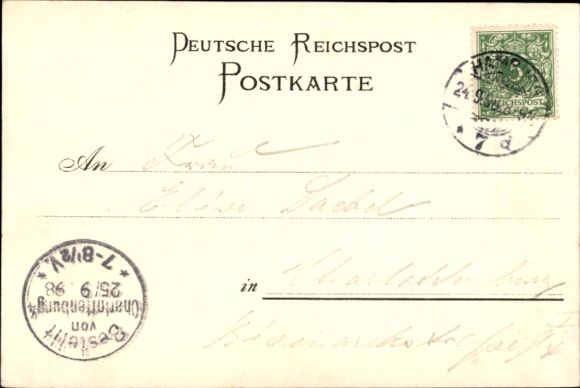 DEUTSCHE REICHSPOST
POSTKARTE
REICHSPOST
HAMBURG
24.9.98
* 7 d
An Frau
Elise
in Charlottenburg
Bestellt
von
Charlottenburg
25/9 98
* 7-8½V. *